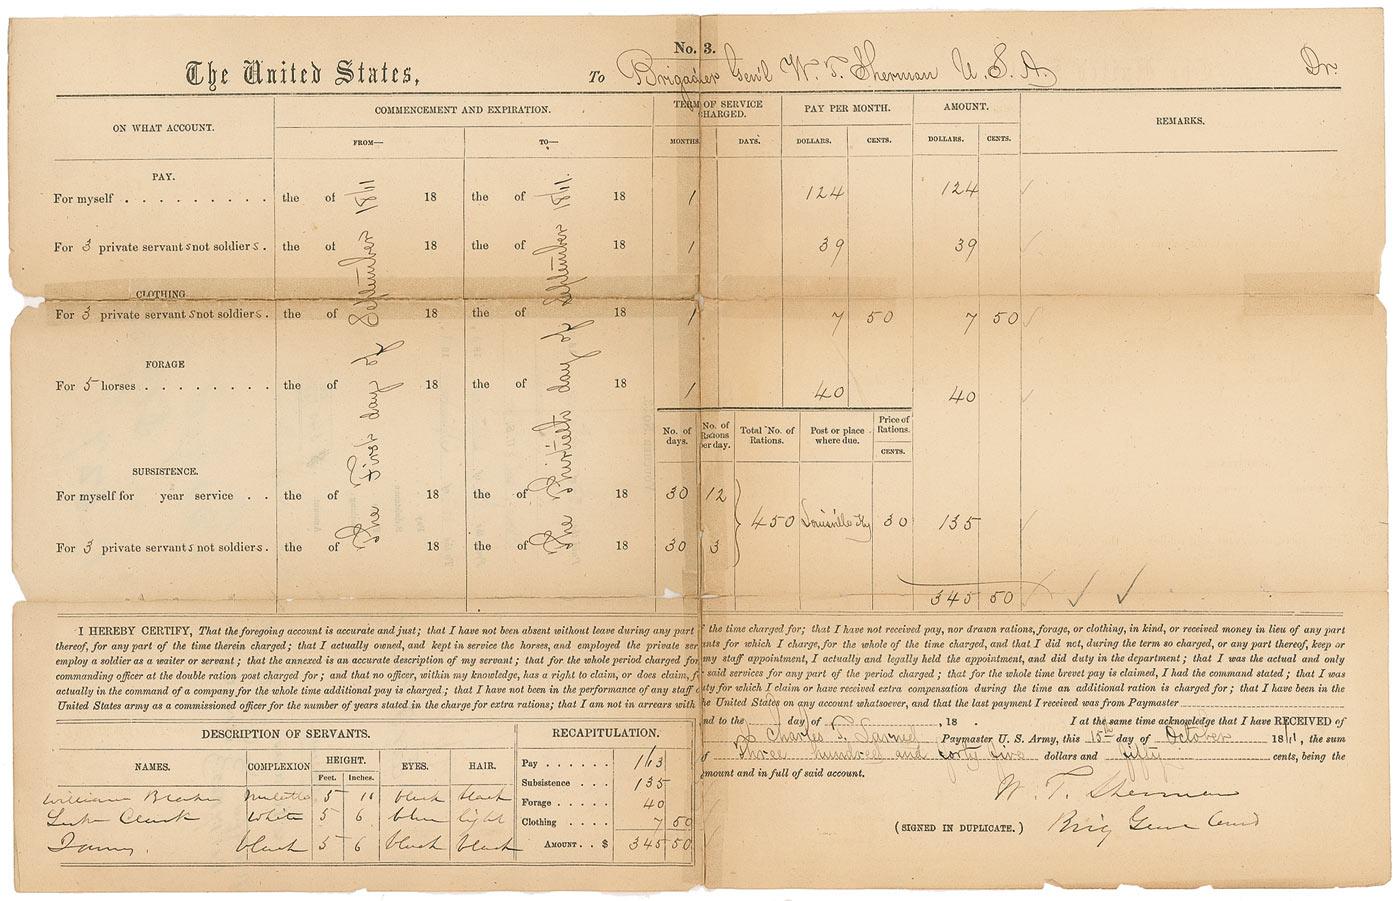 No. 3.
The United States, To Brigadier Gen'l W. T. Sherman U. S. A. Dr.
ON WHAT ACCOUNT. COMMENCEMENT AND EXPIRATION. TERM OF SERVICE CHARGED. PAY PER MONTH. AMOUNT. REMARKS.
FROM— TO— MONTHS. DAYS. DOLLARS. CENTS. DOLLARS. CENTS.
PAY.
For myself . . . . . . . . . the of 18 the of 18 1 124 124
For 3 private servants not soldiers. the of 18 the of 18 1 39 39
CLOTHING
For 3 private servants not soldiers. the of 18 the of 18 1 7 50 7 50
FORAGE
For 5 horses . . . . . . . . the of 18 the of 18 1 40 40
The First day of September 1861
The Thirtieth day of September 1861.
No. of days. No. of Rations per day. Total No. of Rations. Post or place where due. Price of Rations. CENTS.
SUBSISTENCE.
For myself for year service . . the of 18 the of 18 30 12
450 Louisville Ky 30 135
For 3 private servants not soldiers. the of 18 the of 18 30 3
345 50
I HEREBY CERTIFY, That the foregoing account is accurate and just; that I have not been absent without leave during any part of the time charged for; that I have not received pay, nor drawn rations, forage, or clothing, in kind, or received money in lieu of any part
thereof, for any part of the time therein charged; that I actually owned, and kept in service the horses, and employed the private servants for which I charge, for the whole of the time charged, and that I did not, during the term so charged, or any part thereof, keep or
employ a soldier as a waiter or servant; that the annexed is an accurate description of my servant; that for the whole period charged for my staff appointment, I actually and legally held the appointment, and did duty in the department; that I was the actual and only
commanding officer at the double ration post charged for; and that no officer, within my knowledge, has a right to claim, or does claim, for said services for any part of the period charged; that for the whole time brevet pay is claimed, I had the command stated; that I was
actually in the command of a company for the whole time additional pay is charged; that I have not been in the performance of any staff duty for which I claim or have received extra compensation during the time an additional ration is charged for; that I have been in the
United States army as a commissioned officer for the number of years stated in the charge for extra rations; that I am not in arrears with the United States on any account whatsoever, and that the last payment I received was from Paymaster
and to the day of , 18 . I at the same time acknowledge that I have RECEIVED of
Charles T. Larned Paymaster U. S. Army, this 15th day of October 1861, the sum
of Three hundred and forty five dollars and fifty cents, being the
amount and in full of said account.
W. T. Sherman
(SIGNED IN DUPLICATE.) Brig Genl Comd
DESCRIPTION OF SERVANTS.
NAMES. COMPLEXION HEIGHT. EYES. HAIR.
Feet. Inches.
William mulatto 5 10 black black
Luke Clark white 5 6 blue light
black 5 6 black black
RECAPITULATION.
Pay . . . . . . 163
Subsistence . . . 135
Forage . . . . 40
Clothing . . . . 7 50
AMOUNT. . $ 345 50